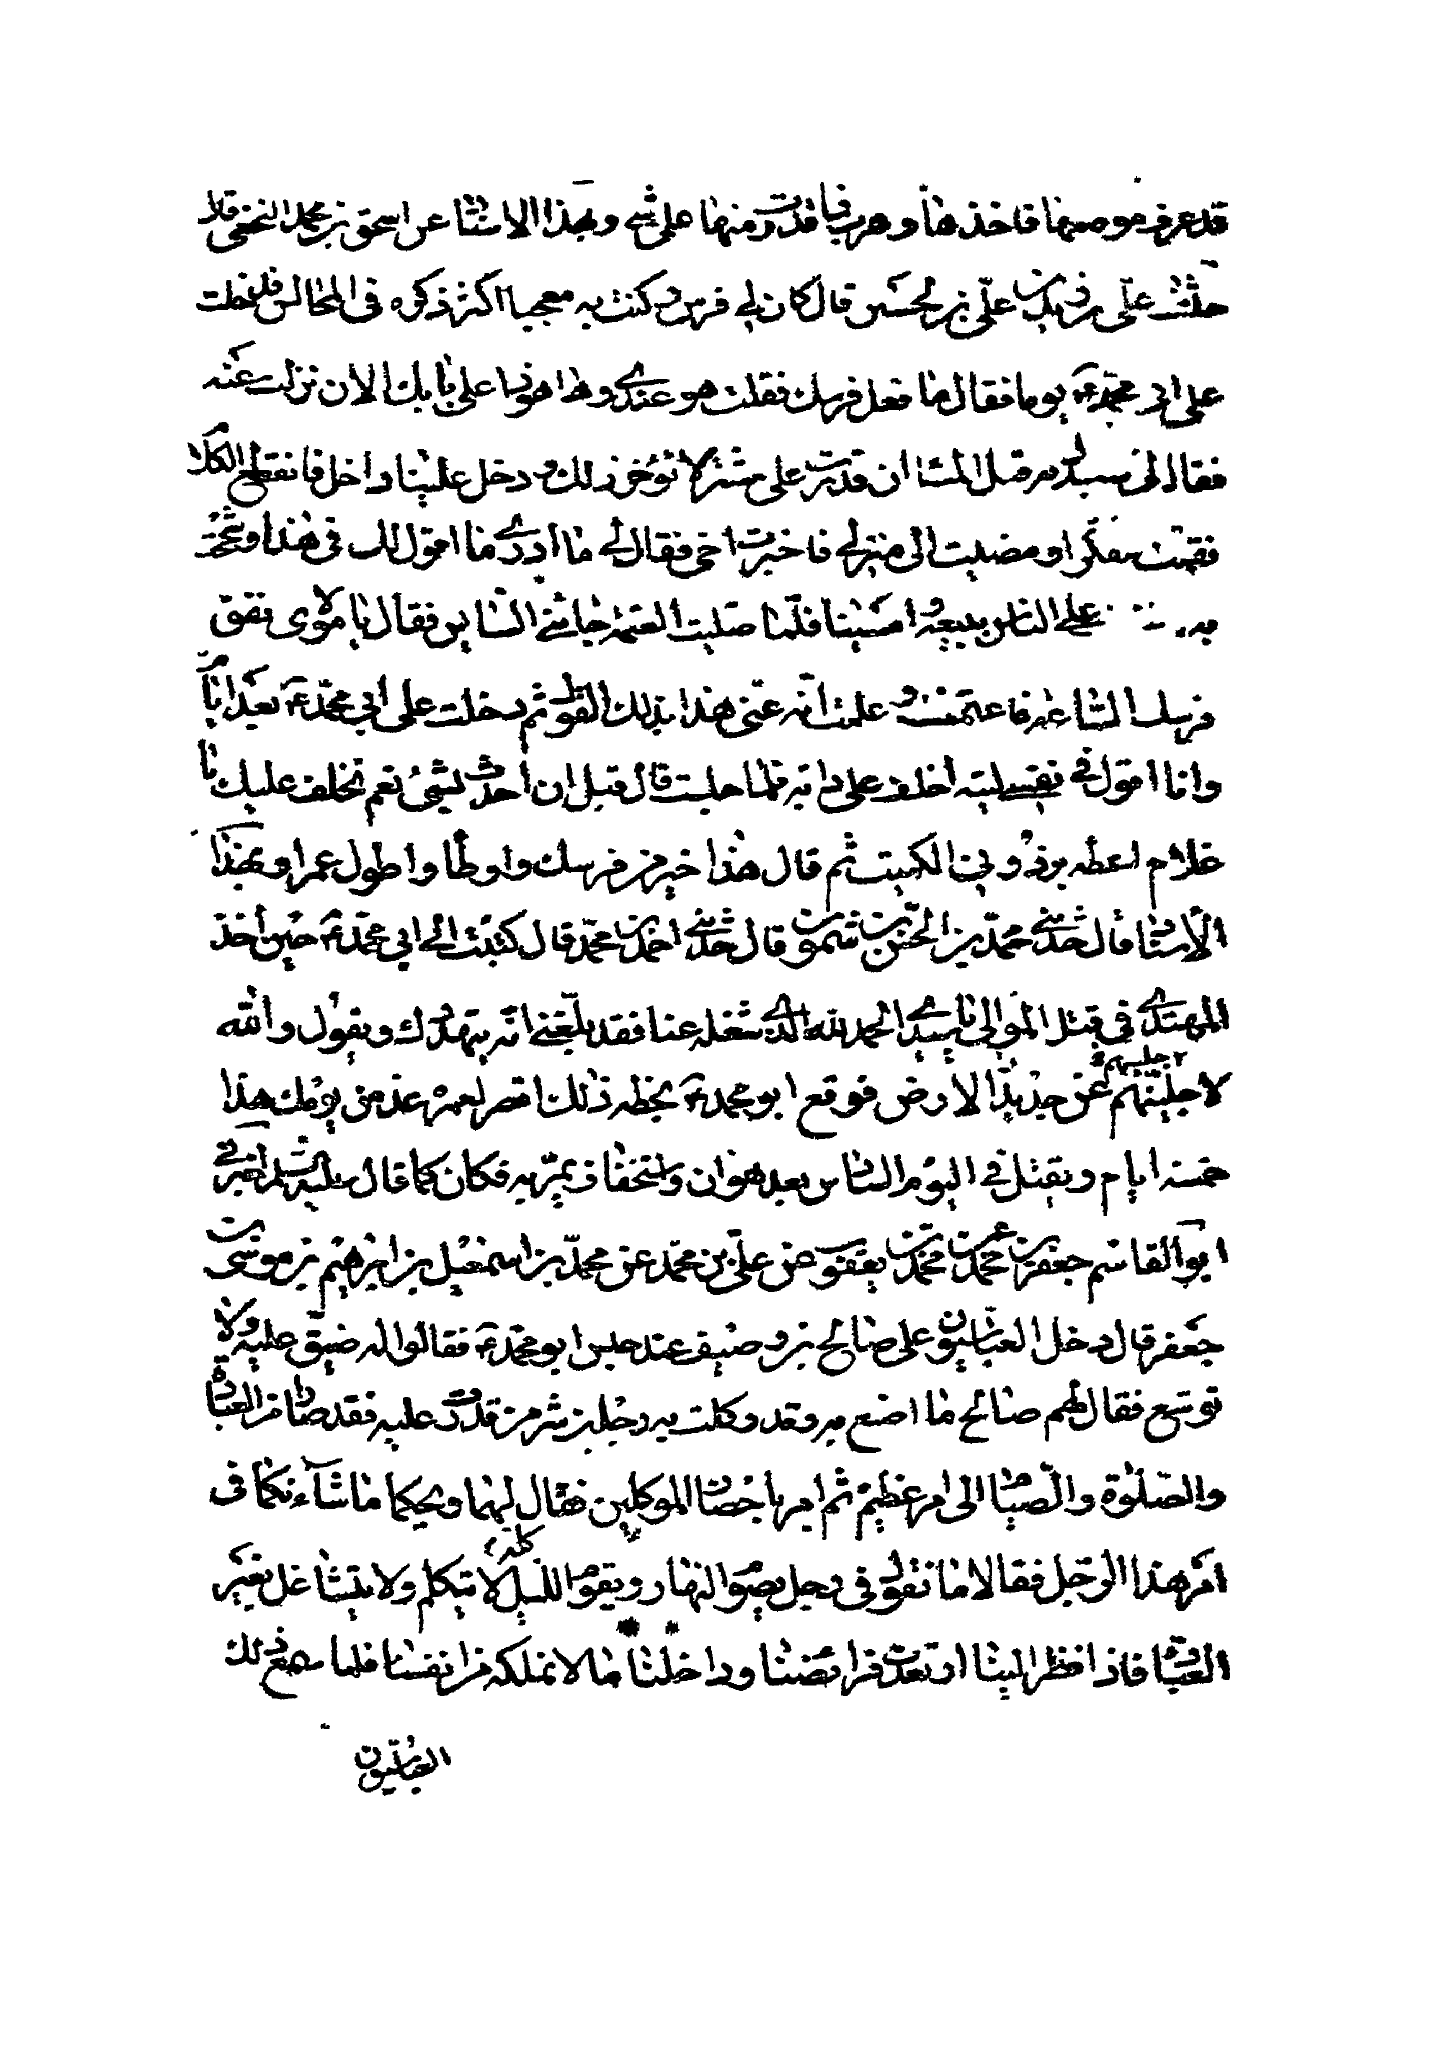 قد عرف موضعها فاخذها وهرب فما قدرت منها على شئ وبهذا الاسناد عن اسحق بن محمد النخعى قال
حدثنا على بن زيد بن على بن الحسين قال كان لى فرس وكنت به معجبا اكثر ذكره فى المحالس فدخلت
على ابى محمد ع يوما فقال ما فعل فرسك فقلت هو عندى وها هو ذا على بابك الان نزلت عنه
فقال لى استبدل به قبل المسا ان قدرت على مشتر لا تؤخر ذلك ودخل علينا داخل فانقطع الكلام
فقمت مفكرا ومضيت الى منزلى فاخبرت اخى فقال لى ما ادرى ما اقول لك فى هذا وشححت
به على الناس ببيعه وامسينا فلما صليت العتمة جائنى السايس فقال يا مولاى نفق
فرسك الساعة فاغتممت وعلمت انه عنى هذا بذلك القول ثم دخلت على ابى محمد ع بعد ايام
وانا اقول فى نفسى ليته اخلف على دابة فلما جلست قال قبل ان احدث بشئ نعم نخلف عليك يا
غلام اعطه برذونى الكميت ثم قال هذا خير من فرسك واوطأ واطول عمرا وبهذا
الاسناد قال حدثنى محمد بن الحسن بن شمون قال حدثنى احمد بن محمد قال كتبت الى ابى محمد ع حين اخذ
المهتدى فى قتل الموالى يا سيدى الحمد لله الذى شغله عنا فقد بلغنى انه يتهددك ويقول والله
لاجلينهم عن جديد الارض فوقع ابو محمد ع بخطه ذلك اقصر لعمره عد من يومك هذا
خمسة ايام ويقتل فى اليوم السادس بعد هوان واستخفاف يمر به فكان كما قال عليه السلام اخبرنى
ابو القاسم جعفر بن محمد عن محمد بن يعقوب عن على بن محمد عن محمد بن اسمعيل بن ابراهيم بن موسى بن
جعفر قال دخل العباسيون على صالح بن وصيف عند حبس ابو محمد ع فقالوا له ضيق عليه ولا
توسع فقال لهم صالح ما اصنع به وقد وكلت به رجلين شر من قدرت عليه فقد صارا من العبادة
والصلوة والصيام الى امر عظيم ثم امر باحضار الموكلين فقال لهما ويحكما ما شأنكما فى
امر هذا الرجل فقالا ما نقول فى رجل يصوم النهار ويقوم الليل كله لا يتكلم ولا يتشاغل بغير
العبادة فاذا نظر الينا ارتعدت فرايصنا وداخلنا ما لا نملكه من انفسنا فلما سمع ذلك
العباسيون